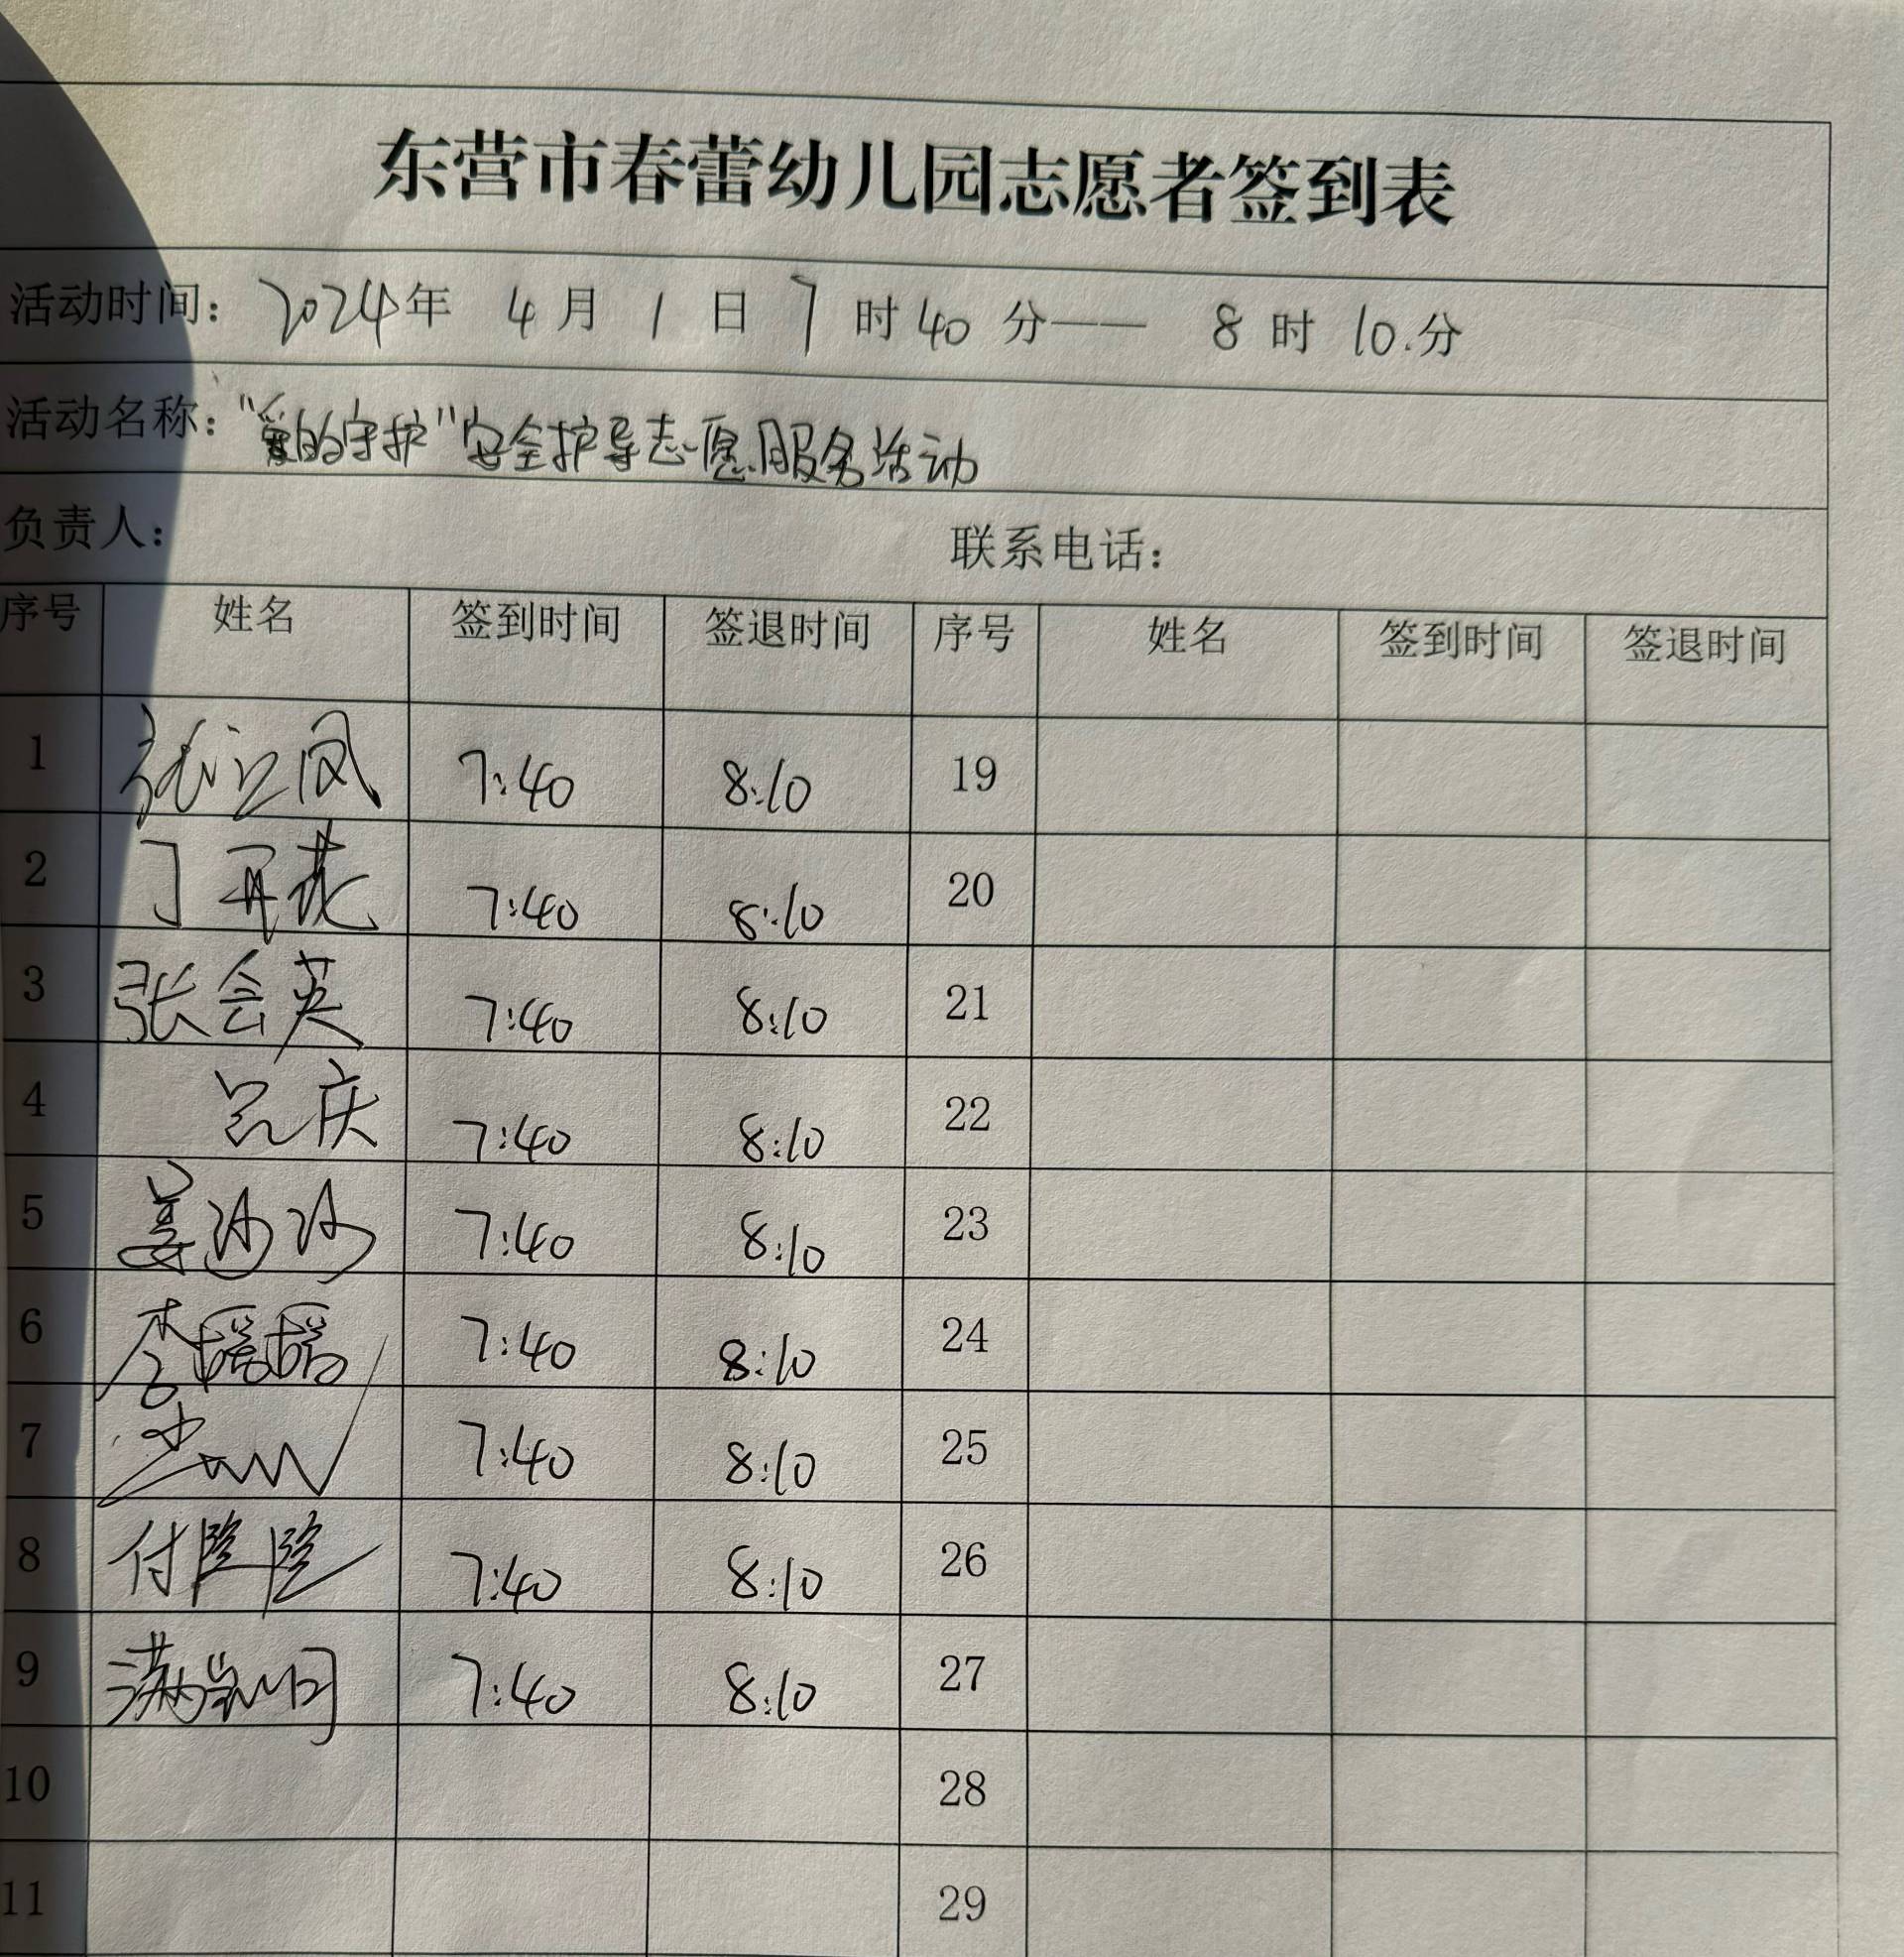 东营市春蕾幼儿园志愿者签到表
活动时间：2024年 4月 1日 7时40分—— 8时10.分
活动名称："爱的守护"安全护导志愿服务活动
负责人： 联系电话：
序号 姓名 签到时间 签退时间 序号 姓名 签到时间 签退时间
1 张立凤 7:40 8:10 19
2 丁再花 7:40 8:10 20
3 张会英 7:40 8:10 21
4 吕庆 7:40 8:10 22
5 姜沙沙 7:40 8:10 23
6 李瑶瑶 7:40 8:10 24
7 7:40 8:10 25
8 付 7:40 8:10 26
9 满 7:40 8:10 27
10 28
11 29